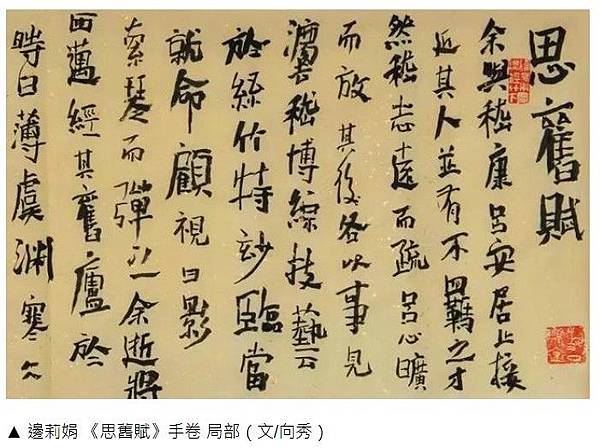 思舊賦
余與嵇康呂安居止接
近其人並有不羈之才
然嵇志遠而疏呂心曠
而放其後各以事見
灋嵇博綜技藝
於絲竹特妙臨當
就命顧視日影
索琴而彈之余逝將
西邁經其舊廬於
時日薄虞淵寒仌
▲ 邊莉娟 《思舊賦》手卷 局部 ( 文/向秀 )